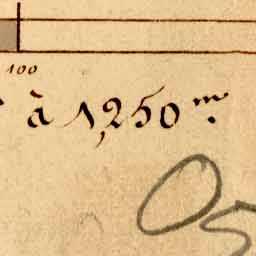 100
à 1,250 m.